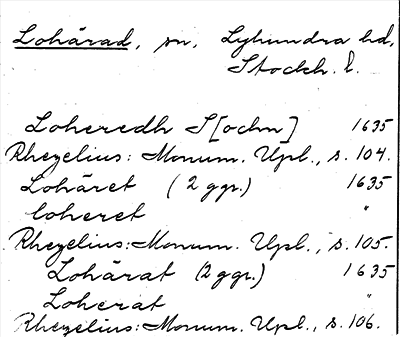 Lohärad, sn, Lyhundra hd,
Stockh. l.
Loheredh S[ochn] 1635
Rhezelius: Monum. Upl., s. 104.
Lohäret (2 ggr.) 1635
Loheret "
Rhezelius: Monum. Upl., s. 105.
Lohärat (2 ggr.) 1635
Loherat "
Rhezelius: Monum. Upl., s. 106.